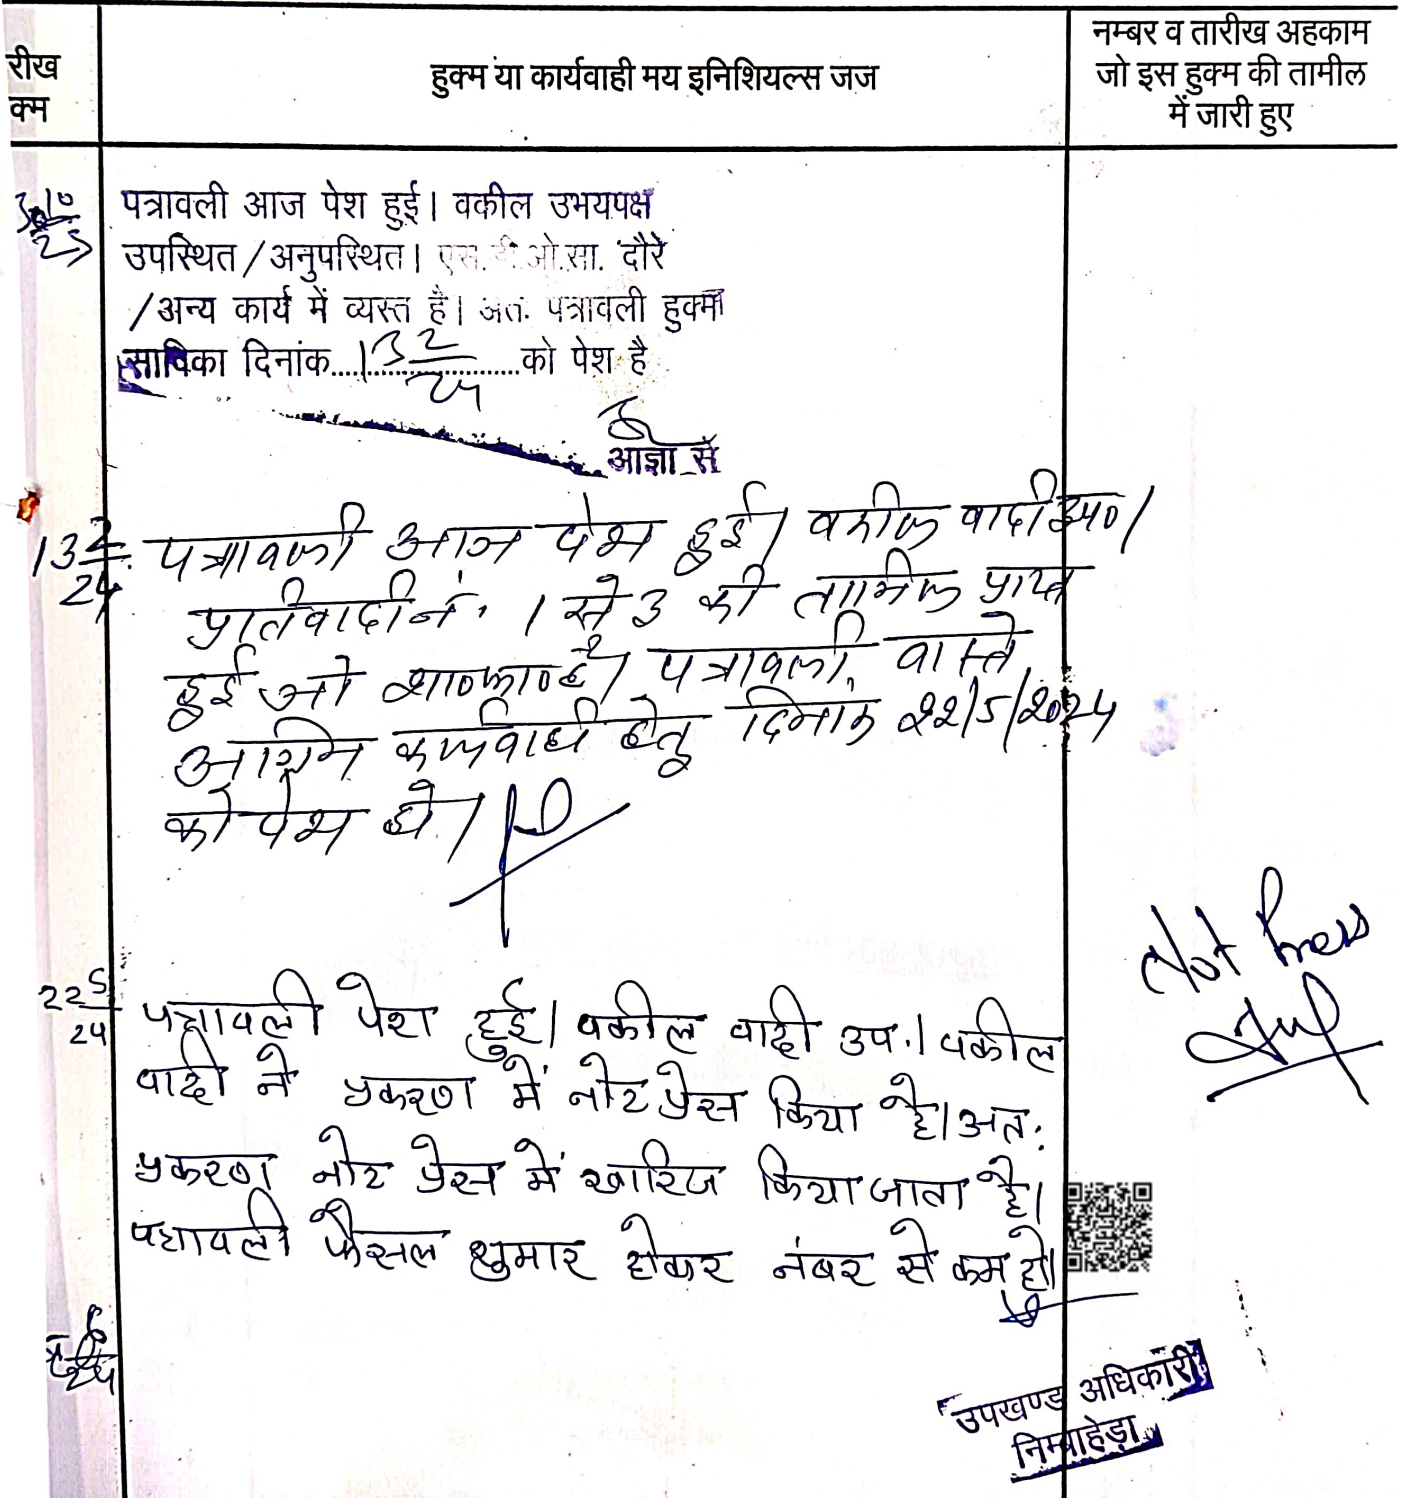 रीख
क्म
हुक्म या कार्यवाही मय इनिशियल्स जज
नम्बर व तारीख अहकाम
जो इस हुक्म की तामील
में जारी हुए
पत्रावली आज पेश हुई। वकील उभयपक्ष
उपस्थित/अनुपस्थित। एस.डी.ओ.सा. दौरे
/अन्य कार्य में व्यस्त है। अतः पत्रावली हुक्म
साविका दिनांक....13 2/24....को पेश है
आज्ञा से
13 2/24 पत्रावली आज पेश हुई। वकील वादी उप०।
प्रतिवादी नं. 1 से 3 की तामिल प्राप्त
हुई जो शा०फा० है। पत्रावली वास्ते
अग्रिम कार्यवाही हेतु दिनांक 22/5/2024
को पेश हो।
Not Press
22 5/24 पत्रावली पेश हुई। वकील वादी उप.। वकील
वादी ने प्रकरण में नोट प्रेस किया है। अतः
प्रकरण नोट प्रेस में खारिज किया जाता है।
पत्रावली फैसल शुमार होकर नंबर से कम हो।
उपखण्ड अधिकारी
निम्बाहेड़ा